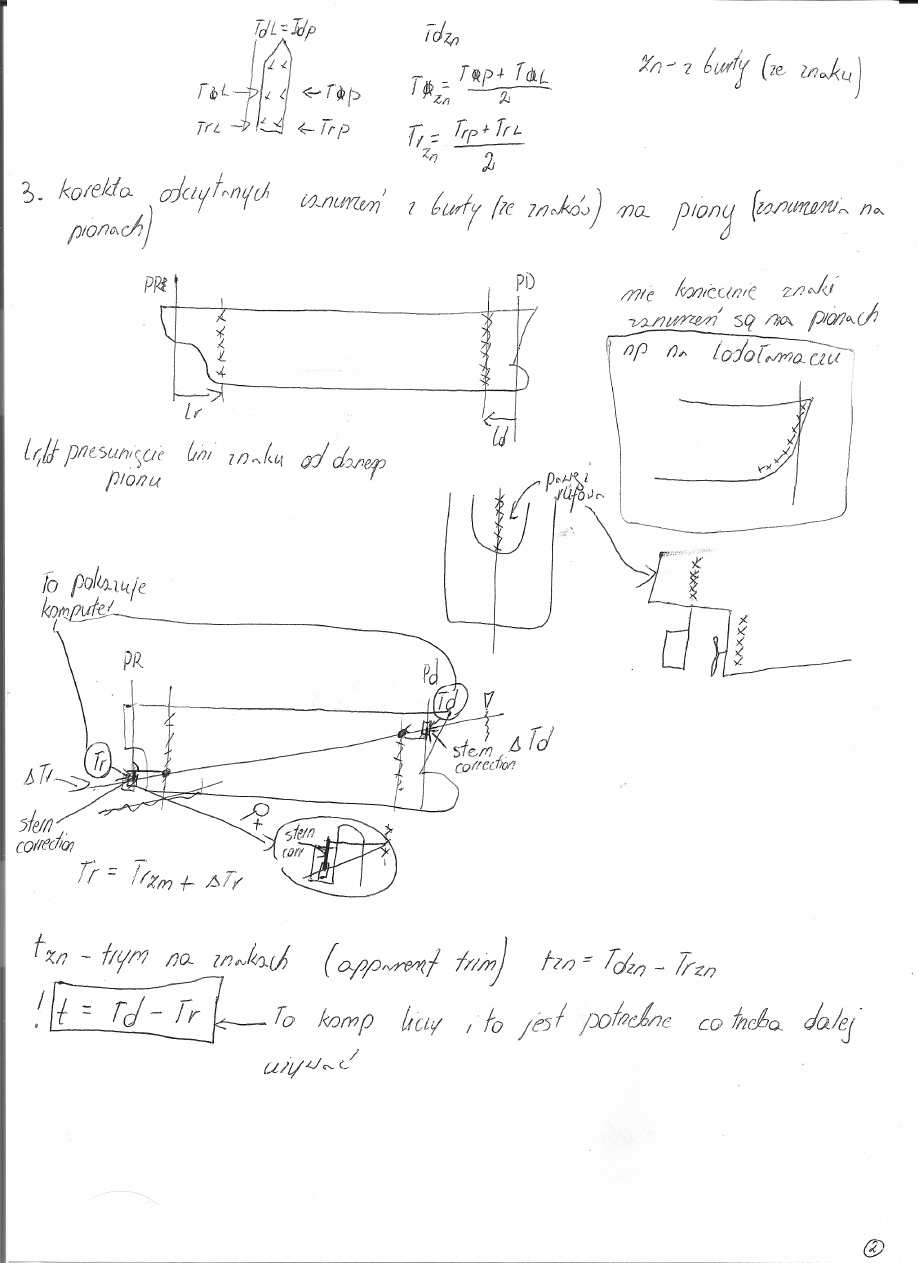 TdL = Tdp
Tdzn
zn - z burty (ze znaku)
T⌀L → ← T⌀p
T⌀zn = T⌀p + T⌀L / 2
TrL → ← Trp
Trzn = Trp + TrL / 2
3. korekta odczytanych zanurzeń z burty (ze znaków) na piony (zanurzenia na
pionach)
PR
PD
nie koniecznie znaki
zanurzeń są na pionach
np na lodołamaczu
lr
ld
lr, ld przesunięcie lini znaku od danego
pionu
pawęż
rufowa
To pokazuje
komputer
PR
Pd
Td
Tr
ΔTr
stem ΔTd
correction
stern
correction
+
stern
corr
Tr = Trzn + ΔTr
tzn - trym na znakach (apparent trim) tzn = Tdzn - Trzn
! t = Td - Tr ← To komp liczy i to jest potrzebne co trzeba dalej
używać
2